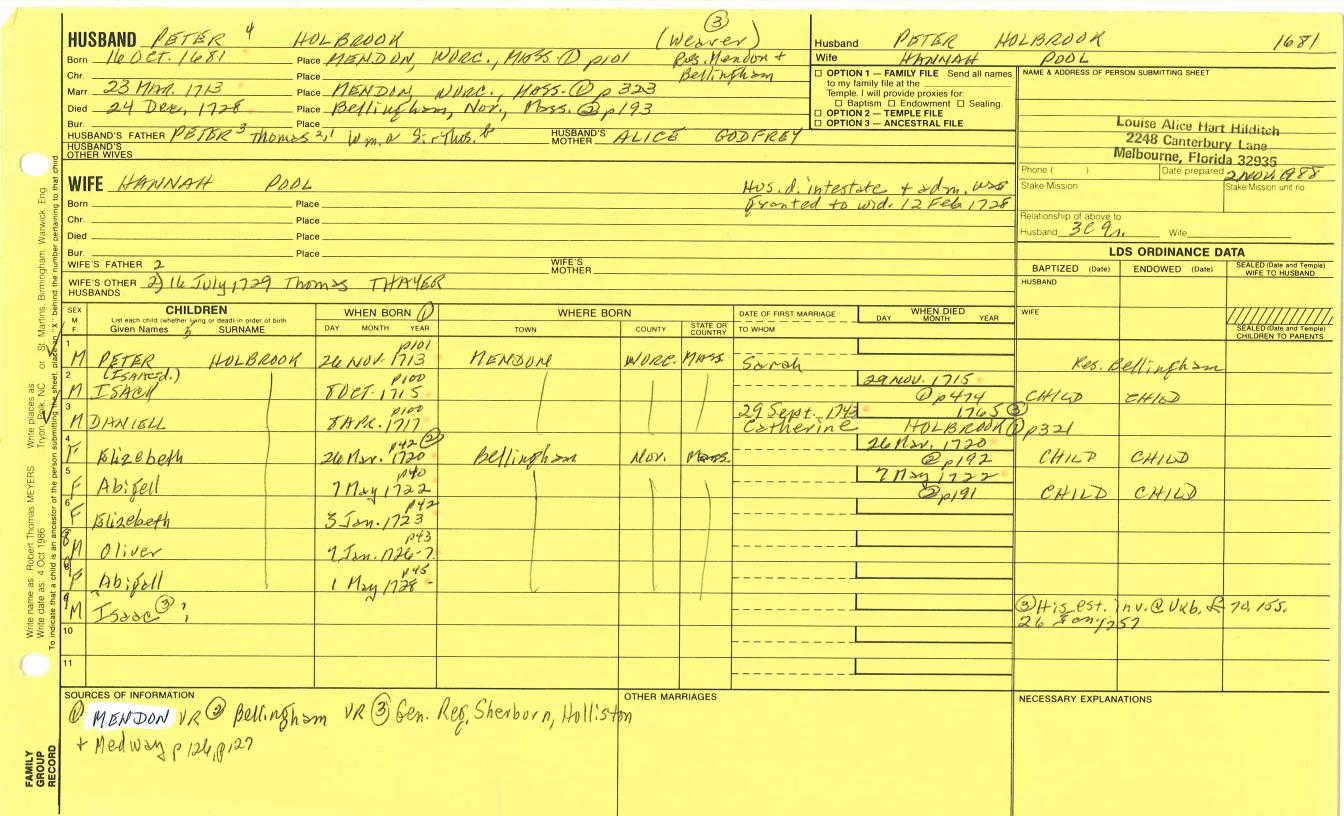 HUSBAND PETER 4 HOLBROOK (Weaver) ③
Born 16 OCT. 1681 Place MENDON, WORC., MASS. ① p101 Res. Mendon +
Chr. Place Bellingham
Marr 23 MAR. 1713 Place MENDON, WORC., MASS. ① p 323
Died 24 Dec. 1728 Place Bellingham, Nor., Mass. ② p193
Bur. Place
HUSBAND'S FATHER PETER 3 Thomas 2,1 HUSBAND'S MOTHER ALICE GODFREY
HUSBAND'S OTHER WIVES
Husband PETER HOLBROOK 1681
Wife HANNAH POOL
☐ OPTION 1 — FAMILY FILE Send all names
to my family file at the
Temple. I will provide proxies for:
☐ Baptism ☐ Endowment ☐ Sealing.
☐ OPTION 2 — TEMPLE FILE
☐ OPTION 3 — ANCESTRAL FILE
NAME & ADDRESS OF PERSON SUBMITTING SHEET
Louise Alice Hart Hilditch
2248 Canterbury Lane
Melbourne, Florida 32935
Phone ( ) Date prepared 2 NOV. 1988
Stake Mission Stake Mission unit no
Relationship of above to
Husband Wife
WIFE HANNAH POOL
Hus. d. intestate + adm. was
granted to wid. 12 Feb 1728
Born Place
Chr. Place
Died Place
Bur. Place
WIFE'S FATHER 2 WIFE'S MOTHER
WIFE'S OTHER HUSBANDS 2) 16 July 1729 Thomas THAYER
LDS ORDINANCE DATA
BAPTIZED (Date) ENDOWED (Date) SEALED (Date and Temple) WIFE TO HUSBAND
HUSBAND
WIFE
SEALED (Date and Temple) CHILDREN TO PARENTS
SEX M F
CHILDREN
List each child (whether living or dead) in order of birth
Given Names SURNAME
WHEN BORN ①
DAY MONTH YEAR
WHERE BORN
TOWN COUNTY STATE OR COUNTRY
DATE OF FIRST MARRIAGE
TO WHOM
WHEN DIED
DAY MONTH YEAR
1 M PETER HOLBROOK 26 NOV. 1713 p101 MENDON WORC. MASS Sarah Res. Bellingham
2 M ISACK 8 OCT. 1715 p100 29 NOV. 1715 ① p474 CHILD CHILD
3 M DANIELL 8 APR. 1717 p100 29 Sept. 1743 1765 ③
Catherine HOLBROOK ① p321
4 F Elizebeth 26 Mar. 1720 p42 ② Bellingham Nor. Mass. 26 Mar. 1720 ② p192 CHILD CHILD
5 F Abigell 7 May 1722 p40 7 May 1722 ② p191 CHILD CHILD
6 F Elizebeth 3 Jan. 1723 p42
8 M Oliver 9 Jan. 1726-7 p43
F Abigall 1 May 1728 - p45
9 M Isaac ③ ③ His est. inv. @ Uxb. £ 70, 155.
26 Jan 1757
10
11
SOURCES OF INFORMATION
① MENDON VR ② Bellingham VR ③ Gen. Reg. Sherborn, Holliston
+ Medway p 126, p127
OTHER MARRIAGES
NECESSARY EXPLANATIONS
FAMILY GROUP RECORD
Write name as Robert Thomas MEYERS Write places as Tryon, Polk, NC or St. Martins, Birmingham, Warwick, Eng
Write date as: 4 Oct 1986
To indicate that a child is an ancestor of the person submitting the sheet, place an "X" behind the number pertaining to that child